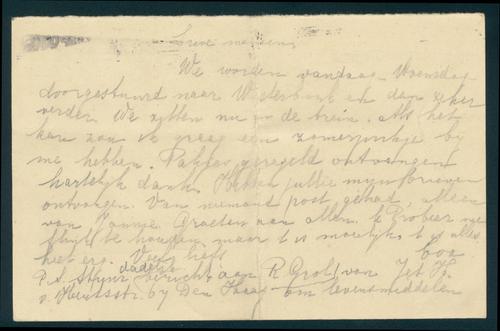 Lieve mensen,
We worden vandaag Woensdag
doorgestuurd naar Westerbork en dan zeker
verder. We zitten nu in de trein. Als het
kan zou ik graag een zomerjurkje bij
me hebben. Pakjes geregeld ontvangen
hartelijk dank. Hebben jullie mijn brieven
ontvangen. Van niemand post gehad, alleen
van Jannie. Groeten aan allen. Ik probeer me
flink te houden, maar 't is moeilijk, 't is alles
heel erg. Veel liefs
P.S. Stuur dadelijk bericht aan R. Grot van Jet K.
v. 67 Den Haag om levensmiddelen